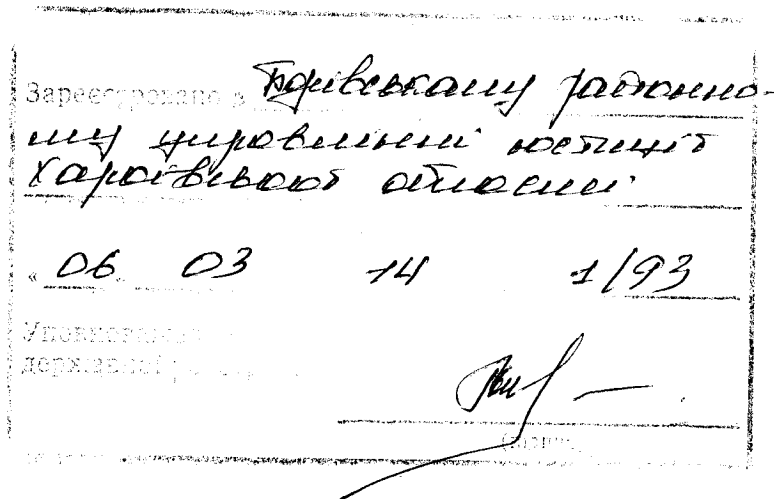 Зареєстровано в районно-
му управлінні юстиції
Харківської області
« 06 » 03 14 1/93
Уповноважена
державної
(підпис)